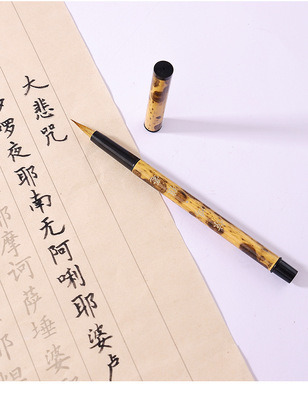 大悲咒
啰夜耶南无阿唎耶婆卢
耶摩诃萨埵婆
怛